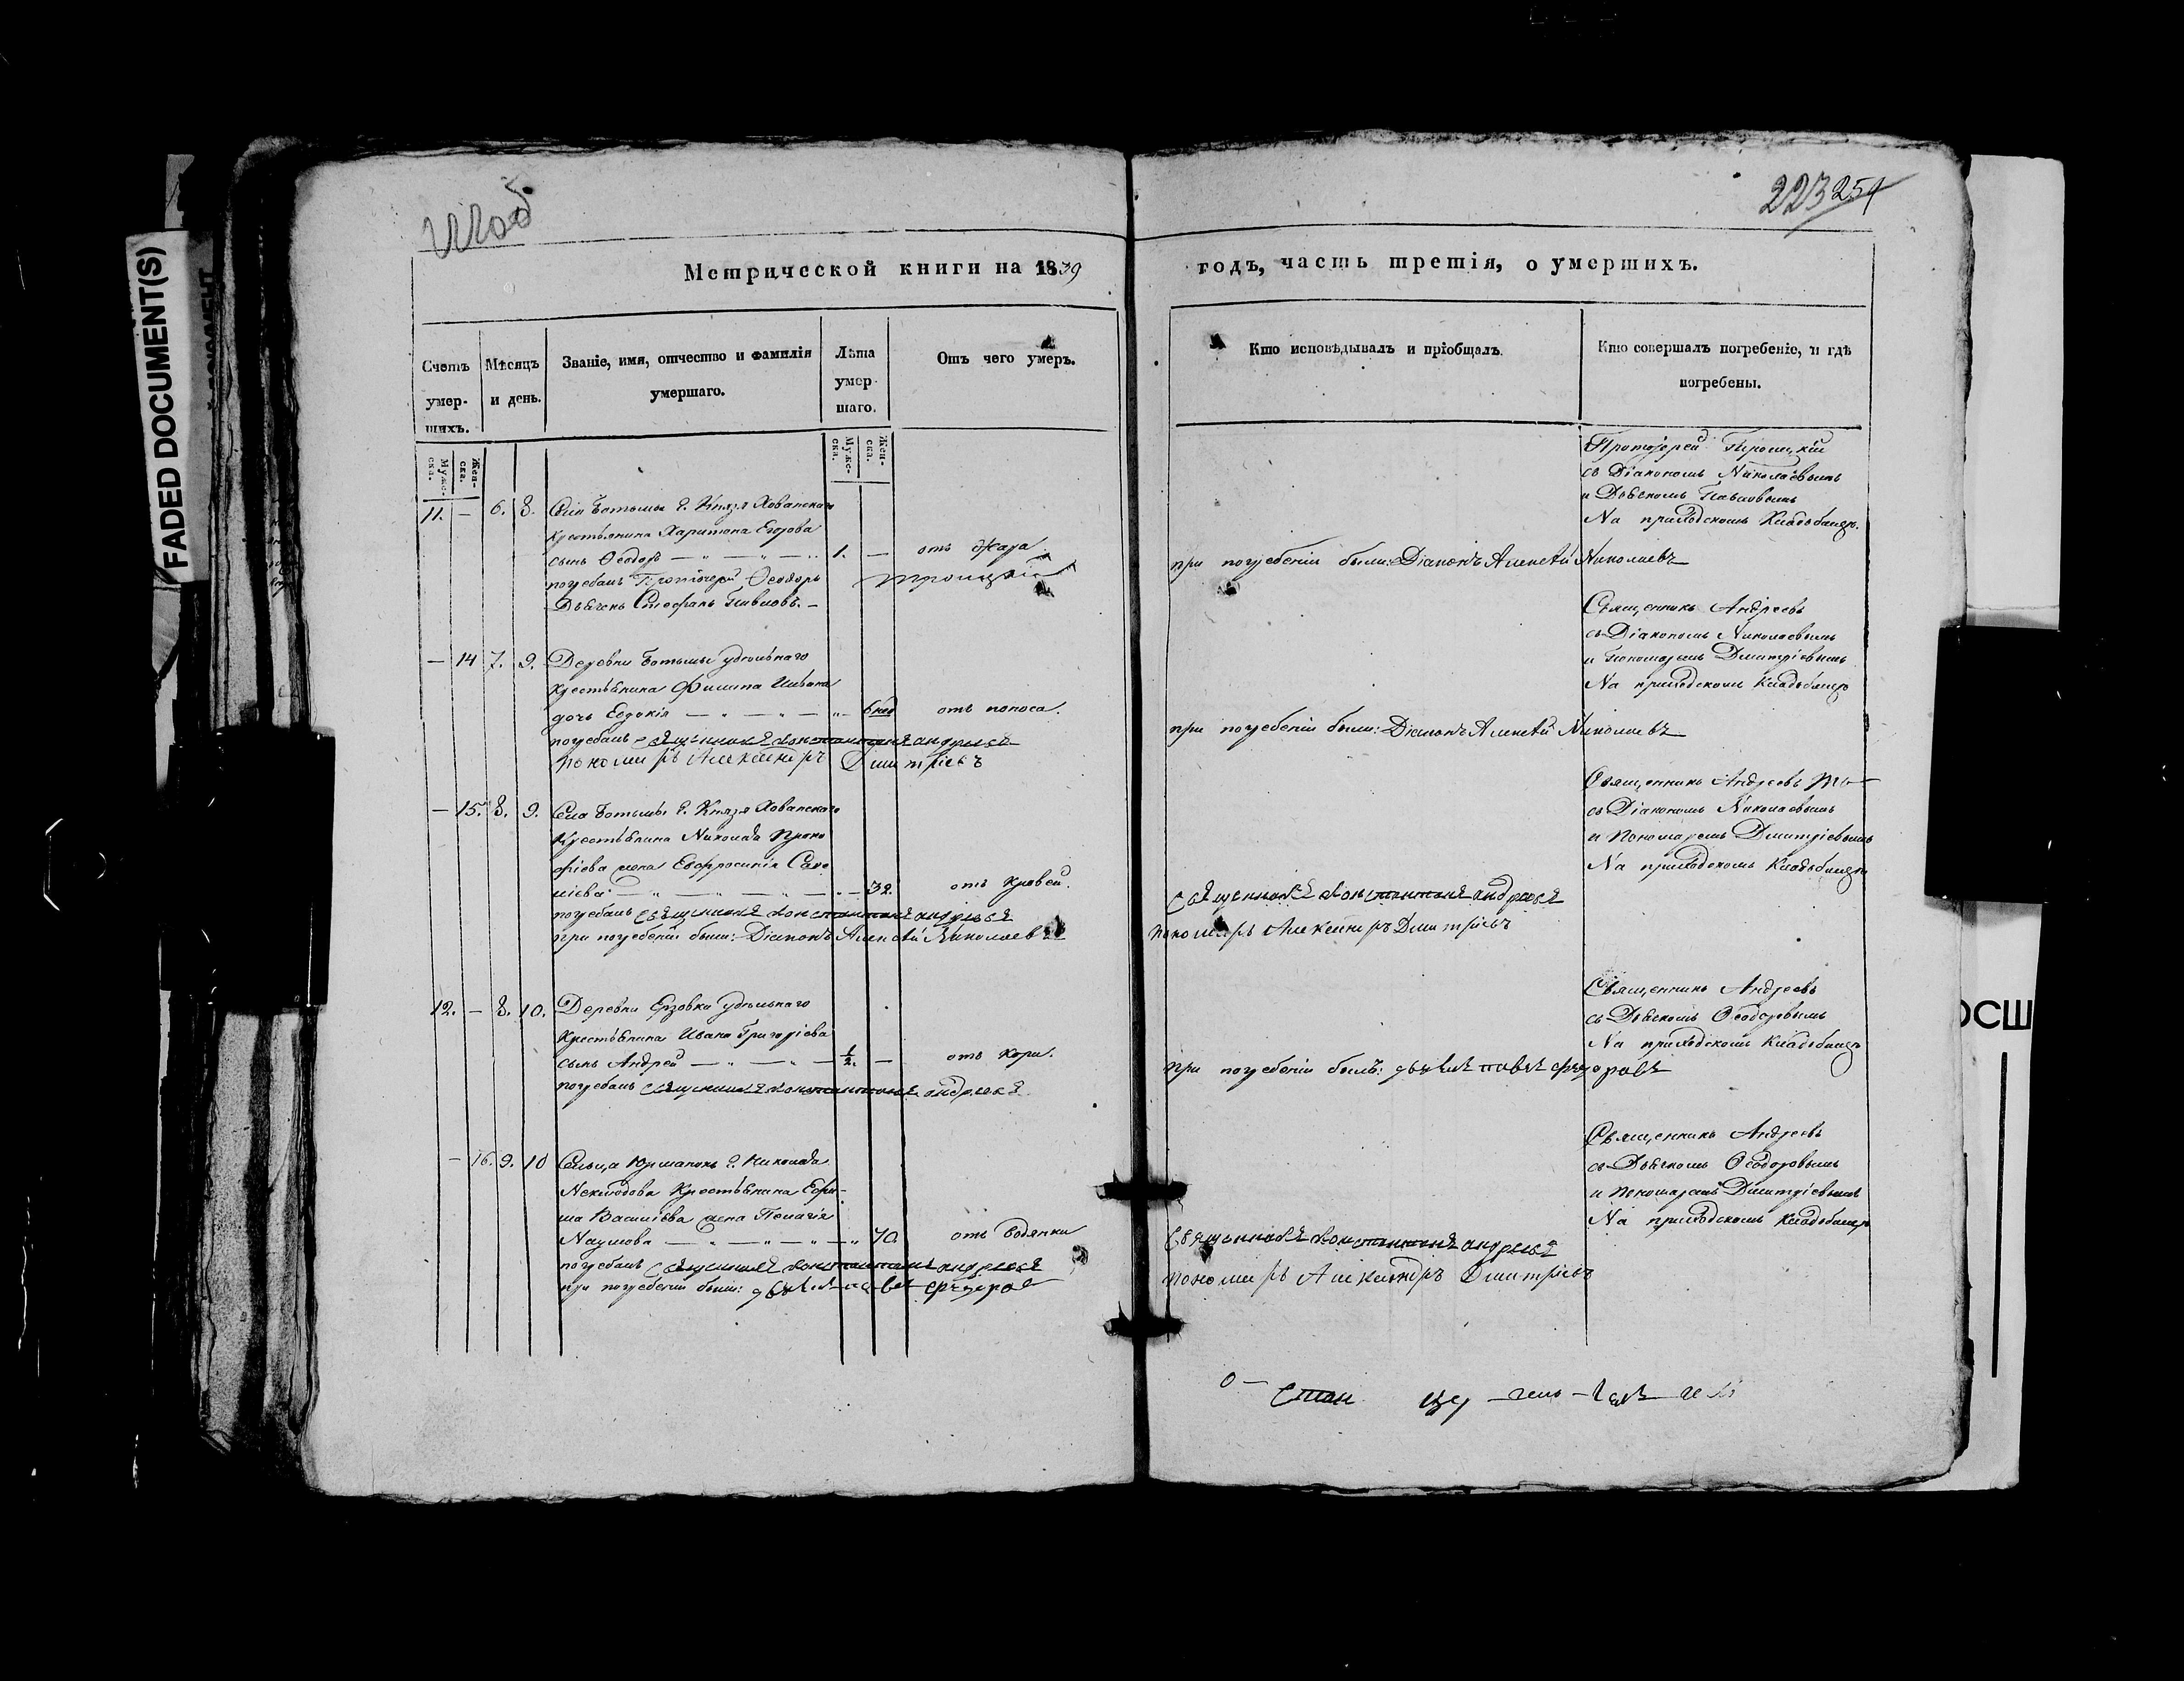 FADED DOCUMENT(S)
223 254
Метрической книги на 1839
годъ, часть третія, о умершихъ.
Счетъ умер-шихъ.
Мѣсяцъ и день.
Званіе, имя, отчество и фамилія умершаго.
Лѣта умер-шаго.
Отъ чего умеръ.
Кто исповѣдывалъ и пріобщалъ.
Кто совершалъ погребеніе, и гдѣ погребены.
Муже-ска.
Жен-ска.
Муже-ска.
Жен-ска.
11. — 6. 8. Села Ботьмы Г. Князя Хованскаго
крестьянина Харитона Егорова
сынъ Ѳеодоръ 1. — отъ жара
погребалъ Протоіерей Ѳеодоръ Троицкій
Дьячекъ Стефанъ Павловъ.
при погребеніи были: Діаконъ Алексѣй Николаевъ
Протоіерей Троицкій
съ Діакономъ Николаевымъ
и Дьячкомъ Павловымъ
На приходскомъ Кладбищѣ.
— 14 7. 9. Деревни Ботьмы удѣльнаго
крестьянина Филиппа Иванова
дочь Евдокія 6 нед отъ поноса.
погребалъ священникъ Константинъ Андреевъ
пономарь Александръ Дмитріевъ
при погребеніи были: Діаконъ Алексѣй Николаевъ
Священникъ Андреевъ
съ Діакономъ Николаевымъ
и Пономаремъ Дмитріевымъ
На приходскомъ Кладбищѣ
— 15. 8. 9. Села Ботьмы Г. Князя Хованскаго
Крестьянина Николая Проко
фіева жена Евфросинія Саве
ліева 32. отъ кровей.
погребалъ священникъ Константинъ Андреевъ
при погребеніи были: Діаконъ Алексѣй Николаевъ
священникъ Константинъ Андреевъ
пономарь Александръ Дмитріевъ
Священникъ Андреевъ
съ Діакономъ Николаевымъ
и Пономаремъ Дмитріевымъ
На приходскомъ Кладбищѣ
12. — 8. 10. Деревни Ерзовки удѣльнаго
Крестьянина Ивана Григоріева
сынъ Андрей 1/2. — отъ кори.
погребалъ священникъ Константинъ Андреевъ
при погребеніи былъ: дьячекъ Павелъ Федоровъ
Священникъ Андреевъ
съ Дьячкомъ Ѳеодоровымъ
На приходскомъ Кладбищѣ
— 16. 9. 10 Сельца Юрманокъ Г. Николая
Неклюдова Крестьянина Ефи-
ма Василіева жена Пелагія
Наумова 70 отъ водянки
погребалъ священникъ Константинъ Андреевъ
при погребеніи были: дьячекъ Павелъ Федоровъ
священникъ Константинъ Андреевъ
пономарь Александръ Дмитріевъ
Священникъ Андреевъ
съ Дьячкомъ Ѳеодоровымъ
и Пономаремъ Дмитріевымъ
На приходскомъ Кладбищѣ